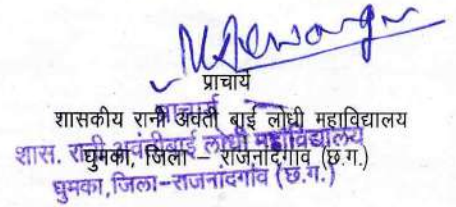 प्राचार्य
शासकीय रानी अवंती बाई लोधी महाविद्यालय
घुमका, जिला – राजनांदगांव (छ.ग.)
प्राचार्य
शास. रानी अवंतीबाई लोधी महाविद्यालय
घुमका, जिला-राजनांदगांव (छ.ग.)